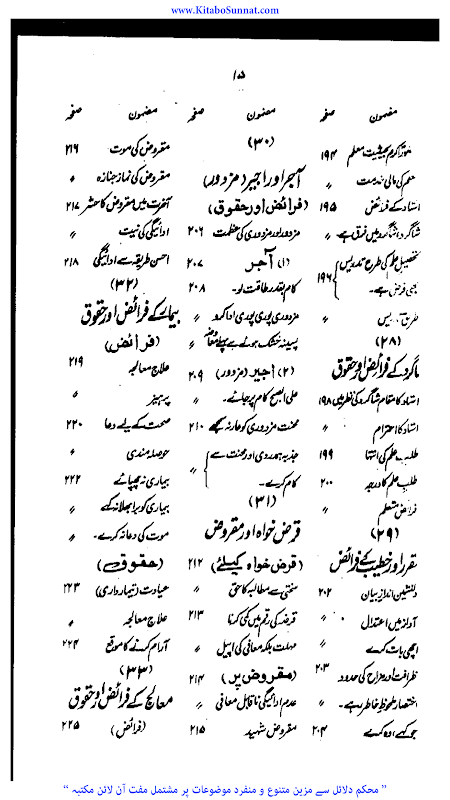 www.KitaboSunnat.com
۱۵
مضمون صفحہ
حضور اکرم بحیثیت معلم ۱۹۴
معلم کی مالی خدمت 〃
استاد کے فرائض ۱۹۵
شاگرد شاگرد میں فرق ہے 〃
تحصیل علم کی طرح تدریس
بھی فرض ہے۔ ۱۹۶
طریق تدریس 〃
(۲۸)
شاگرد کے فرائض اور حقوق
استاد کا مقام شاگرد کی نظر میں ۱۹۸
استاد کا احترام 〃
طلب علم کی انتہا ۱۹۹
طلب علم کا درجہ ۲۰۰
فرائض متعلم 〃
(۲۹)
مقرر اور خطیب کے فرائض
دلنشین انداز بیان ۲۰۲
آواز میں اعتدال 〃
اچھی بات کرے 〃
ظرافت اور مزاح کی حدود ۲۰۳
اختصار ملحوظ خاطر رہے۔ 〃
جو کہے وہ کرے ۲۰۴
مضمون صفحہ
(۳۰)
آجر اور اجیر (مزدور)
(فرائض اور حقوق)
مزدور اور مزدوری کی عظمت ۲۰۶
(۱) آجر ۲۰۷
کام بقدر طاقت لو۔ ۲۰۸
مزدوری پوری پوری ادا کرو 〃
پسینہ خشک ہونے سے پہلے معاوضہ 〃
(۲) اجیر (مزدور) ۲۰۹
علی الصبح کام پر جائے۔ 〃
محنت مزدوری کو عار نہ سمجھے ۲۱۰
جذبہ ہمدردی اور محنت سے
کام کرے۔ 〃
(۳۱)
قرض خواہ اور مقروض
(قرض خواہ کیلئے) ۲۱۲
سختی سے مطالبہ کا حق 〃
قرضہ کی رقم میں کمی کرنا ۲۱۳
مہلت بلکہ معافی کی اپیل 〃
(مقروض پر) ۲۱۴
عدم ادائیگی ناقابل معافی 〃
مقروض شہید ۲۱۵
مضمون صفحہ
مقروض کی موت ۲۱۶
مقروض کی نماز جنازہ 〃
آخرت میں مقروض کا حشر ۲۱۷
ادائیگی کی نیت 〃
احسن طریقہ سے ادائیگی ۲۱۸
(۳۲)
بیمار کے فرائض اور حقوق
(فرائض)
علاج معالجہ ۲۱۹
پرہیز 〃
صحت کے لیے دعا ۲۲۰
حوصلہ مندی 〃
بیماری نہ چھپائے ۲۲۲
بیماری کو برا بھلا نہ کہے 〃
موت کی دعا نہ کرے۔ 〃
(حقوق)
عیادت (تیمارداری) ۲۲۳
علاج معالجہ 〃
آرام کرنے کا موقع ۲۲۴
(۳۳)
معالج کے فرائض اور حقوق
(فرائض) ۲۲۵
” محکم دلائل سے مزین متنوع و منفرد موضوعات پر مشتمل مفت آن لائن مکتبہ “